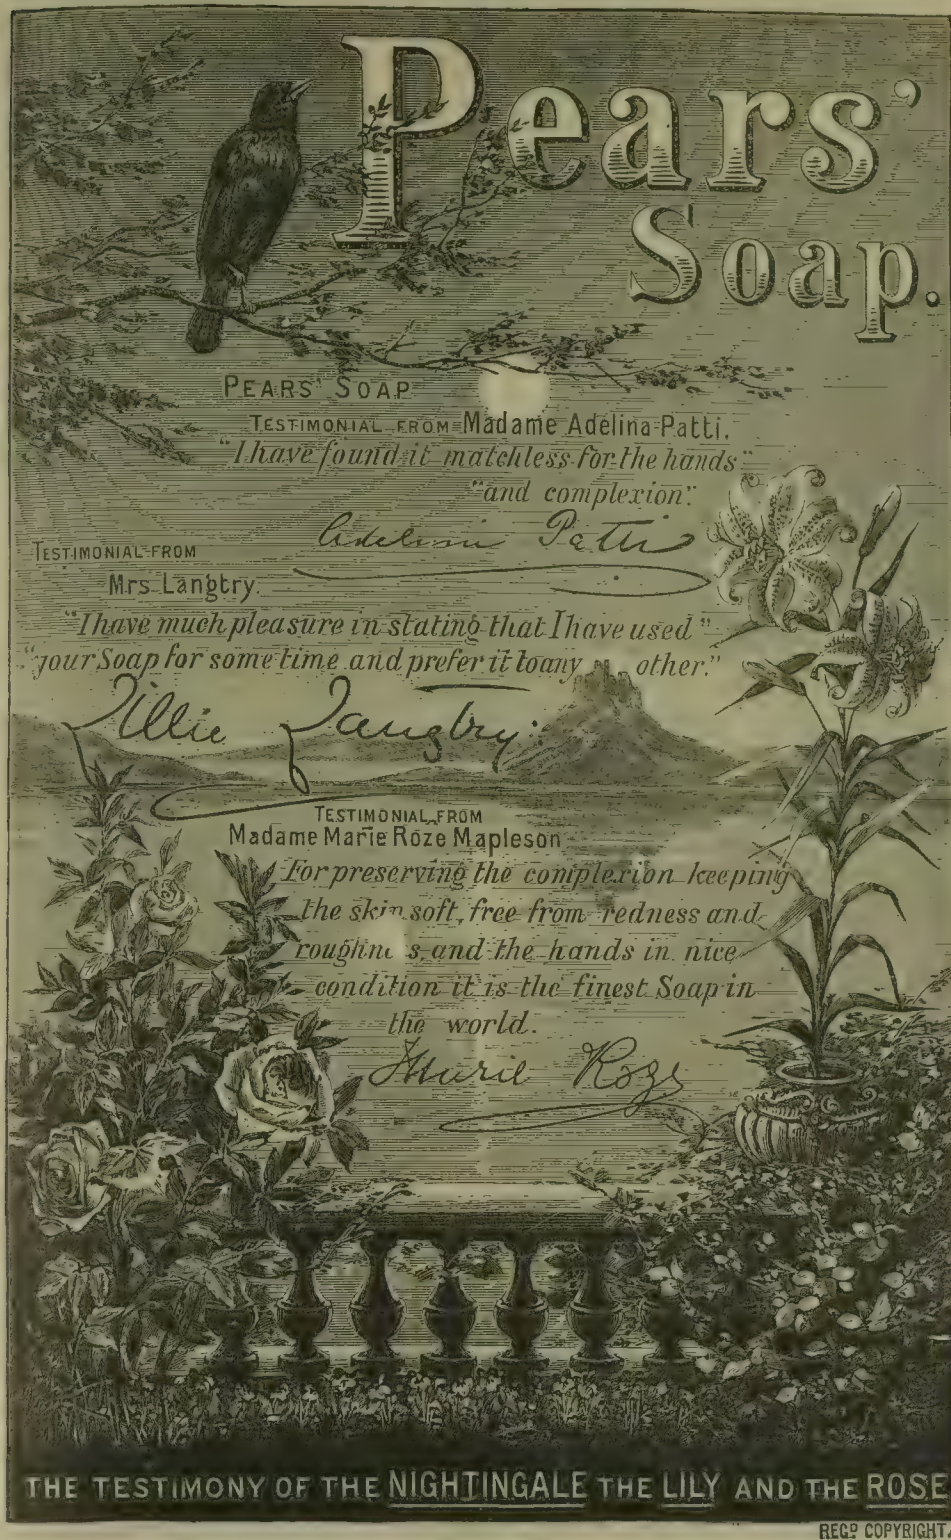 Pears'
Soap.
PEARS' SOAP
TESTIMONIAL FROM Madame Adelina Patti.
"I have found it matchless for the hands"
"and complexion".
Adelina Patti
TESTIMONIAL FROM
Mrs Langtry.
"I have much pleasure in stating that I have used"
"your Soap for some time and prefer it to any other."
Lillie Langtry.
TESTIMONIAL FROM
Madame Marie Roze Mapleson
For preserving the complexion keeping
the skin soft, free from redness and
roughness, and the hands in nice
condition it is the finest Soap in
the world.
Marie Roze
THE TESTIMONY OF THE NIGHTINGALE THE LILY AND THE ROSE
REGD. COPYRIGHT